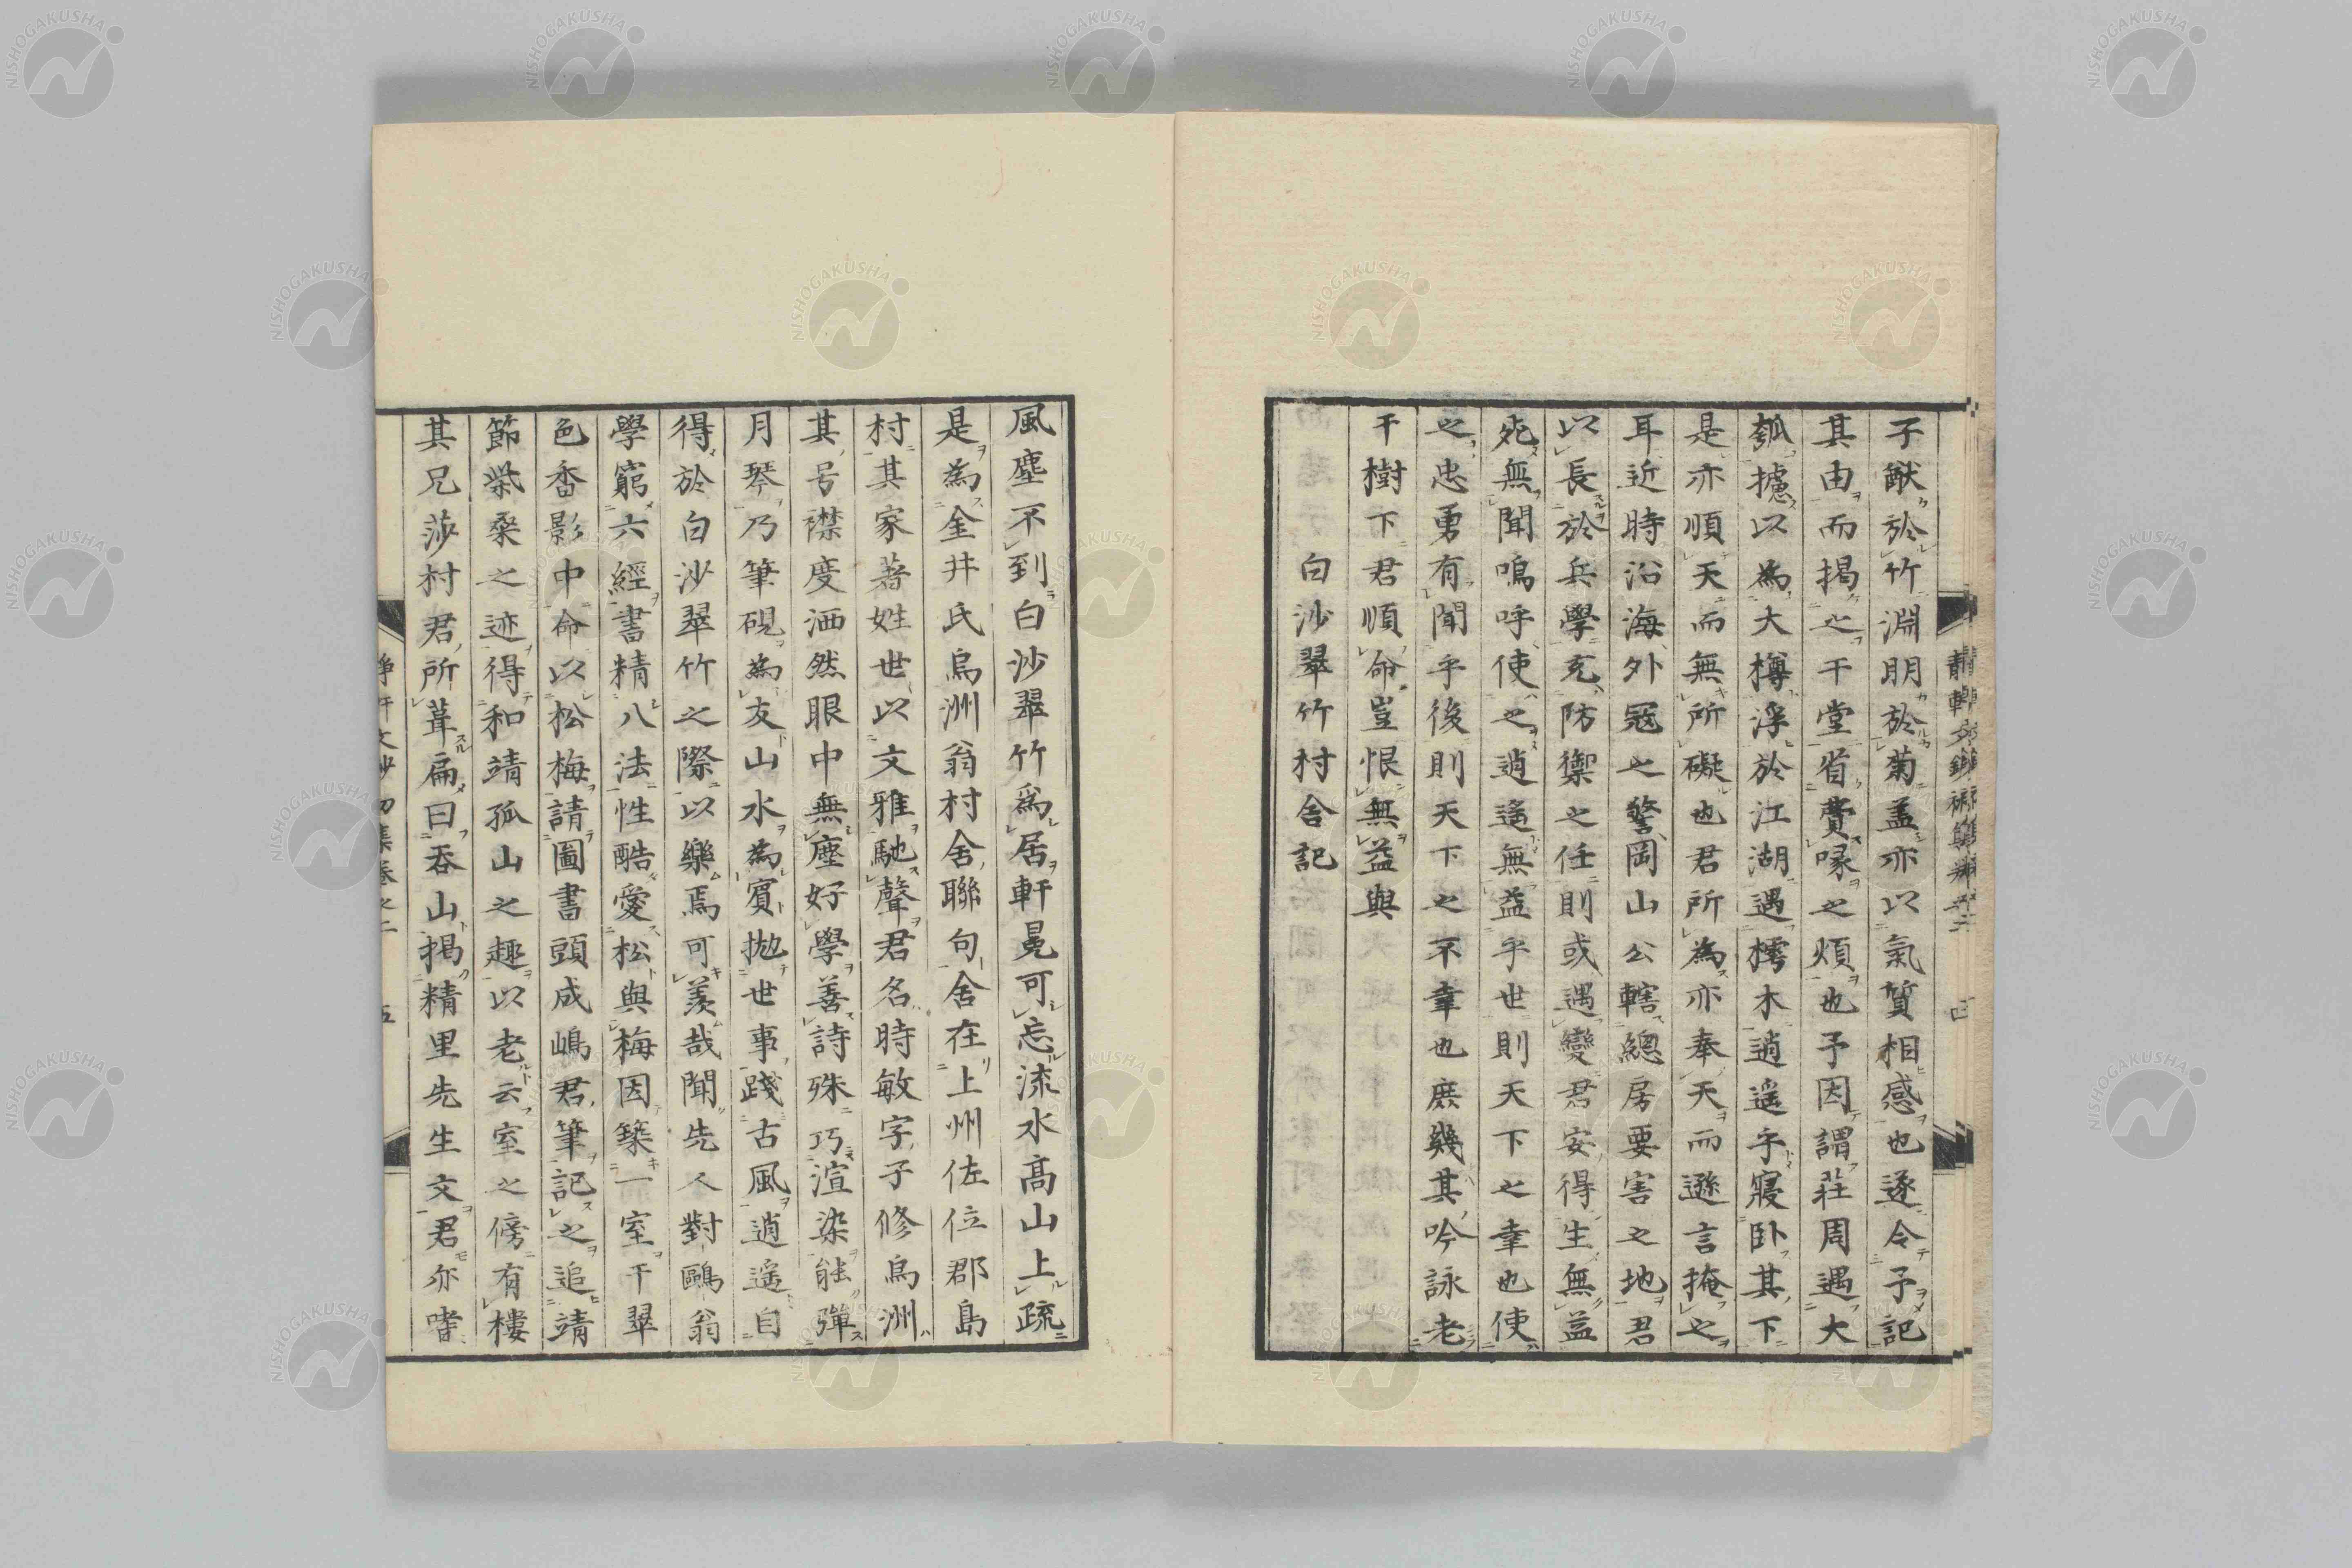 子猷於竹淵明於菊盖亦以氣質相感也遂令予記
其由而揭之干堂省費喙之煩也予因謂莊周遇大
瓠攄以為大樽浮於江湖遇樗木逍遥乎寢卧其下
是亦順天而無所礙也君所為亦奉天而遜言掩之
耳近時沿海外冦之警岡山公轄總房要害之地君
以長於兵學充防禦之任則或遇變君安得生無益
死無聞嗚呼使之逍遥無益乎世則天下之幸也使
之忠勇有聞乎後則天下之不幸也庶幾其吟詠老
干樹下君順命豈恨無益與
白沙翠竹村舍記
風塵不到白沙翠竹爲居軒冕可忘流水高山上疏
是為金井氏烏洲翁村舍聯句舍在上州佐位郡島
村其家著姓世以文雅馳聲君名時敏字子修烏洲
其号襟度洒然眼中無塵好學善詩殊巧渲染能彈
月琴乃筆硯為友山水為賓拋世事踐古風逍遥自
得於白沙翠竹之際以樂焉可羨哉聞先人對鷗翁
學窮六經書精八法性酷愛松與梅因築一室干翠
色香影中命以松梅請圖書頭成嶋君筆記之追靖
節柴桑之迹得和靖孤山之趣以老云室之傍有樓
其兄莎村君所葺扁曰吞山揭精里先生文君亦嗜
五
NISHOGAKUSHA